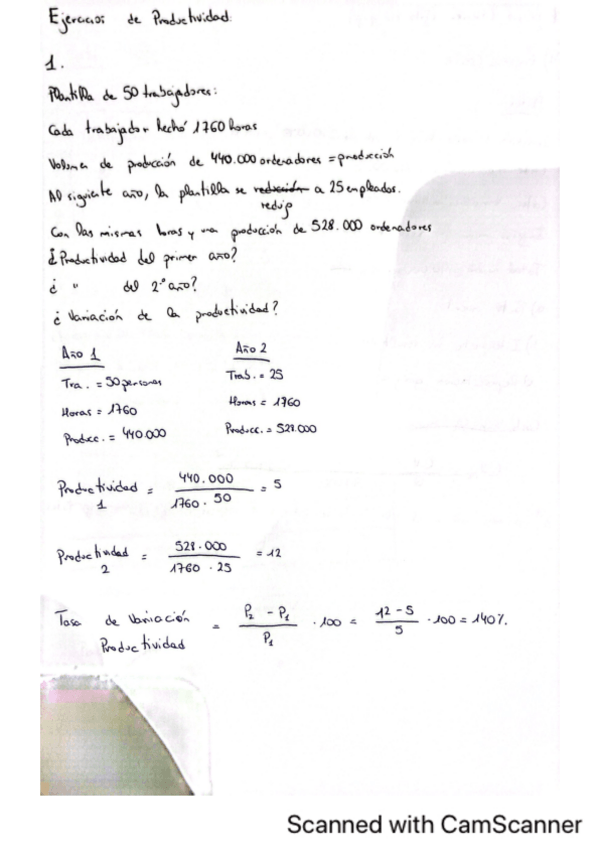 Ejercicios de Productividad.
1.
Plantilla de 50 trabajadores:
Cada trabajador hechó 1760 horas
Volumen de producción de 440.000 ordenadores = producción
Al siguiente año, la plantilla se redujo a 25 empleados.
Con las mismas horas y una producción de 528.000 ordenadores
¿Productividad del primer año?
¿ " del 2º año?
¿Variación de la productividad?
Año 1
Tra. = 50 personas
Horas = 1760
Producc. = 440.000
Año 2
Trab. = 25
Horas = 1760
Producc. = 528.000
Productividad 1 = 440.000 / 1760 · 50 = 5
Productividad 2 = 528.000 / 1760 · 25 = 12
Tasa de Variación Productividad = P2 - P1 / P1 · 100 = 12 - 5 / 5 · 100 = 140%.
Scanned with CamScanner